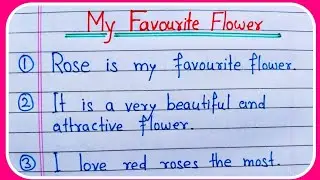 My Favourite Flower
① Rose is my favourite flower.
② It is a very beautiful and
attractive flower.
③ I love red roses the most.